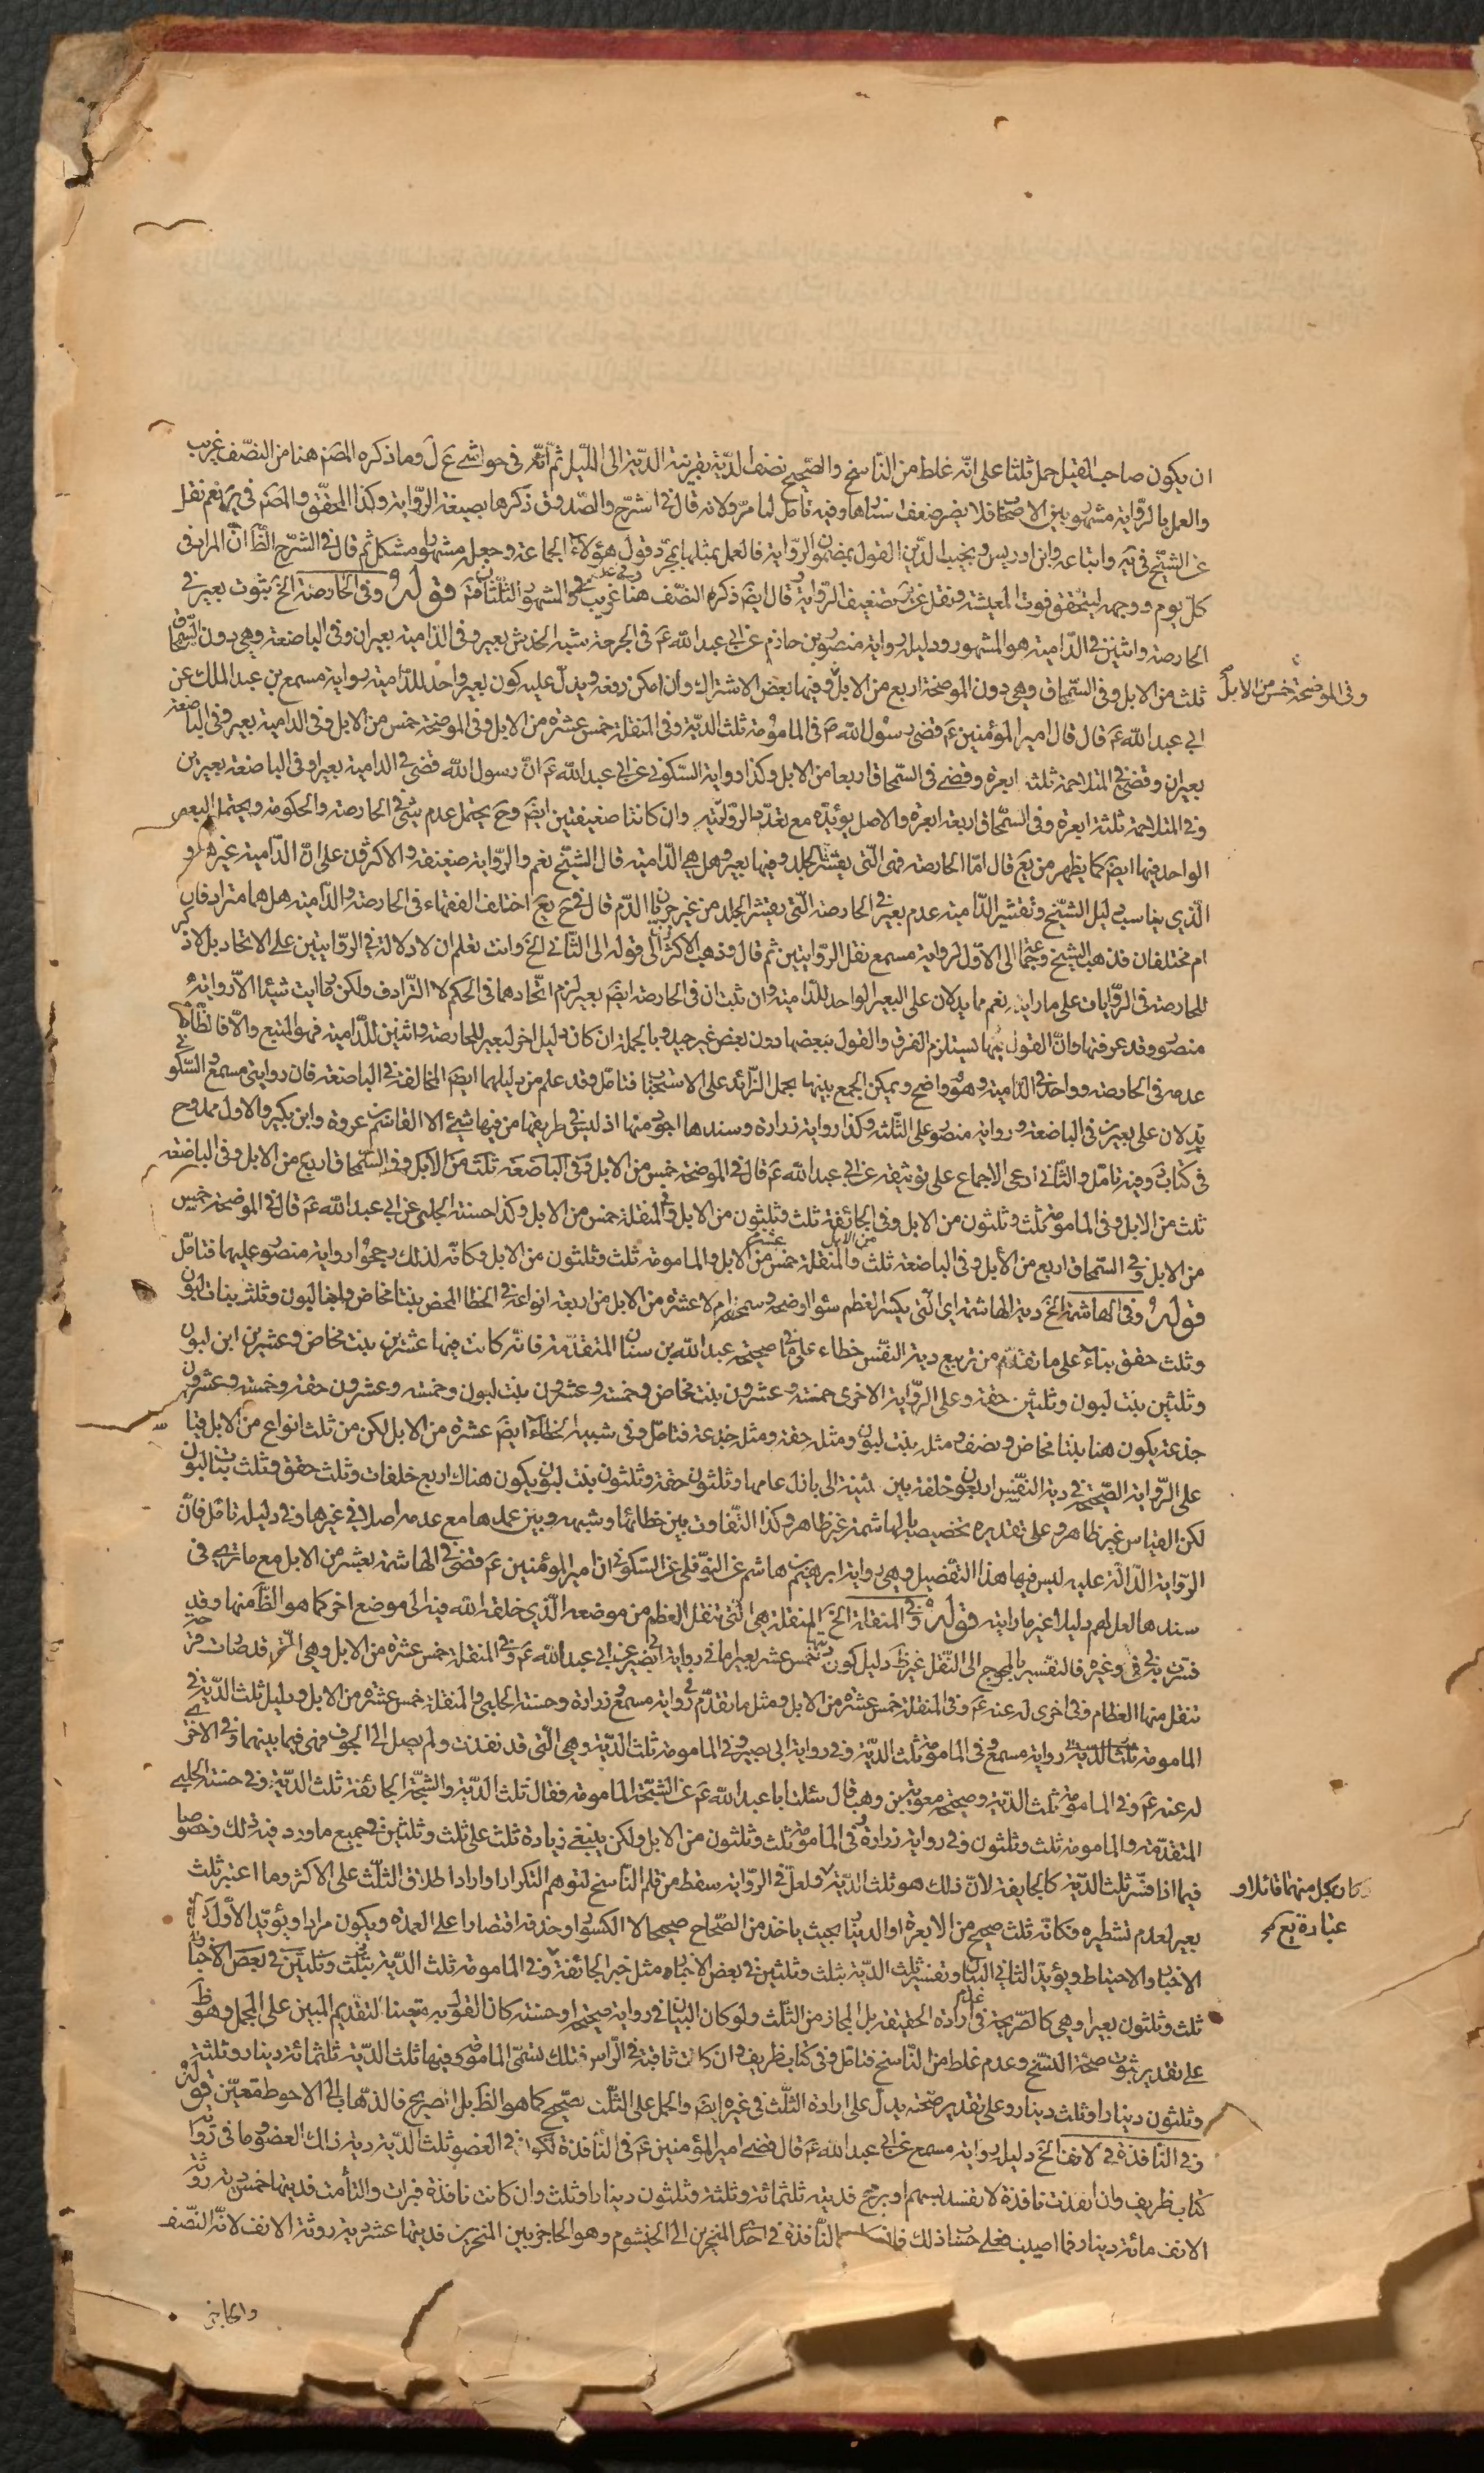 ان يكون صاحب القيل حمل ثلثا على انّه غلط من النّاسخ والصّحيح نصف الديّة بقرينة الديّة الى اللّيل ثم انّه في حواشي ع ل وما ذكره المصَ هنا من النصّف غريب
والعمل بالروّاية مشهو بين الاصحا فلا يضر ضعف سندها وفيه تامّل لما مرّ ولانه قال في الشرّح والصّدوق ذكرها بصيغة الروّاية وكذا المحقّق والمصَ في ير نعم نقل
عن الشّيخ في يَه واتباعه وابن ادريس ونجيب الدّين القول بمضمون الروّاية فالعمل بمثلها بمجرّد قول هؤلاء الجماعة وجعله مشهو مشكل ثم قال في الشّرح الظّا انّ المراد في
كلّ يوم ووجهه ليتحقق فوت المعيشة ونقل عن تضعيف الروّاية قال ايضَ ذكره النصّف هنا غريب والمشهو الثلّثان قوله وفي الحارصة الخ ثبوت بعير في
الحارصة واثنين في الدّامية هو المشهور ودليله رواية منصو بن حازم عن ابي عبد الله عَ في الجرحة شبه الخدش بعير وفي الدّامية بعيران وفي الباضعة وهي دون السّمحاق
ثلث من الابل وفي السّمحاق وهي دون الموضحة اربع من الابل وفيها بعض الاشتراك وان امكن دفعه ويدلّ عليه كون بعير واحد للدّامية رواية مسمع بن عبد الملك عن
وفي الموضحة خمس من الابل
ابي عبد الله عَ قال قال امير المؤمنين عَ قضى رسول الله صَ في الماموُمة ثلث الديّة وفي المنقلة خمس عشرة من الابل وفي الموضحة خمس من الابل وفي الدامية بعير وفي الباضعة
بعيران وقضى في المتلاحمة ثلثة ابعرة وقضى في السّمحاق اربعا من الابل وكذا رواية السّكوني عن ابي عبد الله عَ انّ رسول الله قضى في الدامية بعيرا وفي الباضعة بعيرين
وفي المتلاحمة ثلثة ابعرة وفي السّمحاق اربعة ابعرة والاصل يؤيّده مع تعدّد الروّاية وان كانتا ضعيفتين ايضَ وحَ يحتمل عدم شئ في الحارصة والحكومة ويحتمل البعير
الواحد فيها ايضَ كما يظهر من يَع قال امّا الحارصة فهي الّتي يقشر الجلد وفيها بعير وهل هي الدّامية قال الشّيخ نعم والروّاية ضعيفة والاكثرون على انّ الدّامية غيرها و
الّذي يناسب دليل الشّيخ وتفسير الدّامية عدم بعير في الحارصة الّتي يقشر الجلد من غير جريان الدّم قال في ح يع اختلف الفقهاء في الحارصة والدّامية هل هما مترادفان
ام مختلفان فذهب الشيخ وجماعة الى الاوّل لرواية مسمع نقل الروّايتين ثم قال وذهب الاكثر الى قوله الى الثّاني الخ وانت تعلم ان لا دلالة في الروّايتين على الاتحاد بل لا ذكر
للحارصة في الروّايات على ما رايته نعم مما يدلان على البعير الواحد للدّامية وان ثبت ان في الحارصة ايضَ بعير لزم اتّحادهما في الحكم لا الترّادف ولكن ما رايت شيئا الاّ رواية
منصو وقد عرفتها وانّ القول بها يستلزم الفرق والقول ببعضها دون بعض غير جيد وبالجملة ان كان دليل اخر لبعير للحارصة واثنين للدّامية فهو المتبع والاّ فالظّاهر
عدمه في الحارصة وواحد في الدّامية وهو واضح ويمكن الجمع بينها بحمل الزّائد على الاستحبا فتامّل وقد علم من دليلهما ايضَ المخالفة في الباضعة فان روايتى مسمع والسّكوني
يدلان على بعيرين في الباضعة ورواية منصو على الثّلثة وكذا رواية زرارة وسندها اجود منها اذ ليس في طريقها من فيها شئ الا القاسم بن عروة وابن بكير والاول ممدوح
في كتاب وفيه تامّل والثّاني ادعى الاجماع على توثيقه عن ابي عبد الله عَ قال في الموضحة خمس من الابل وفي الباضعة ثلث من الابل وفي السّمحاق اربع من الابل وفي الباضعة
ثلث من الابل وفي الماموُمة ثلث وثلثون من الابل وفي الجائفة ثلث وثلثون من الابل وفي المنقلة خمس من الابل وكذا حسنة الحلبي عن ابي عبد الله عَ قال في الموضحة خمس
من الابل وفي السّمحاق اربع من الأبل وفي الباضعة ثلث من الابل والمنقلة خمس عشرة من الابل والمامومة ثلث وثلثون من الابل وكانّه لذلك رجحوُا رواية منصو عليهما فتامّل
قوله وفي الهاشمة الخ دية الهاشمة اي الّتي يكسر العظم سواء اوضحه وسمحه ام لا عشرة من الابل من اربعة انواعه في الخطا المحض بنتا مخاض وابنا لبون وثلث بنات لبون
وثلث حقق بناءً على ما تقدّم من توزيع دية النفّس خطاء على ما في صحيحة عبد الله بن سنان المتقدّمة فانّه كانت فيها عشرين بنت مخاض وعشرين ابن لبون
وثلثين بنت لبون وثلثين حقة وعلى الروّاية الاخرى خمسة وعشرون بنت مخاض وخمسة وعشرون بنت لبون وخمسة وعشرون حقة وخمسة وعشرون
جذعة يكون هنا بنتا مخاض ونصف ومثله بنت لبون ومثله حقة ومثله جذعة فتامّل وفي شبيه الخطاء ايضَ عشرة من الابل لكن من ثلث انواع من الابل فبنا
على الروّاية الصّحيحة في دية النفّس اربعون خلفة بين ثنية الى بازل عامها وثلثون حقة وثلثون بنت لبون يكون هناك اربع خلفات وثلث حقق وثلث بنات لبون
لكن القياس غير ظاهر وعلى تقديره تخصيصه بالهاشمة غير ظاهر وكذا التفّاوت بين خطائها وشبهه وبين عمدها مع عدمه اصلا في غيرها وفي دليله تامّل فانّ
الروّاية الدّالّة عليه ليس فيها هذا التفّصيل وهي رواية ابرهيم بن هاشم عن النوّفلي عن السّكوني ان امير المؤمنين عَ قضى في الهاشمة بعشر من الابل مع ما ترى في
سندها لعل لهم دليلا غير ما رايته قوله وفي المنقلة الخ المنقلة هي الّتي تنقل العظم من موضعه الّذي خلقه الله فيه الى موضع اخر كما هو الظّ منها وقد
فسّرت به في ق وغيره فالتفّسير بالمحوج الى النقّل غير ظَ دليل كون ديتها خمس عشر بعيرا ما في رواية ابي بصير عن ابي عبد الله عَ وفي المنقلة خمس عشرة من الابل وهي الّتي قد صارت قرحة
تنقل منها العظام وفي اخرى له عنه عَ وفي المنقلة خمس عشرة من الابل ومثل ما تقدّم في رواية مسمع وزرارة وحسنة الحلبي والمنقلة خمس عشرة من الابل ودليل ثلث الديّة في
المامومة ثلث الديّة رواية مسمع وفي المامومة ثلث الديّة وفي رواية ابي بصير وفي المامومة ثلث الديّة وهي الّتي قد نفذت ولم يصل الى الجوف فهي فيما بينهما وفي الاخرى
له عنه عَ وفي المامومة ثلث الديّة وصحيحة معوية بن وهب قال سئلت ابا عبد الله عَ عن الشّجّة المامومة فقال ثلث الديّة والشّجّة الجائفة ثلث الديّة وفي حسنة الحلبي
المتقدّمة والمامومة ثلث وثلثون وفي رواية زرارة وفي المامومة ثلث وثلثون من الابل ولكن ينبغي زيادة ثلث على ثلث وثلثين في جميع ما ورد فيه ذلك وخصوصا
فيما اذا فسّر ثلث الديّة كالجايفة لانّ ذلك هو ثلث الديّة ولعلّ في الروّاية سقط من قلم النّاسخ لتوهم التكرار او اراد اطلاق الثلّث على الاكثر وما اعتبر ثلث
وكان بكل منهما قائلا و
عبارة يع كـ
بعير لعدم تشطيره فكانّه ثلث صحيح من الابعرة او الدينا بحيث ياخذ من الصّحاح صحيحا لا الكسو او حذفه اقتصارا على العمدة ويكون مرادا ويؤيّد الاوّل
الاخبار والاحتياط ويؤيّد الثاني البيان وتفسير ثلث الديّة بثلث وثلثين في بعض الاخبار مثل خبر الجائفة وفي المامومة ثلث الديّة بثلث وثلثين في بعض الاخبار
ثلث وثلثون بعيرا وهي كالصّريحة في عدم ارادة الحقيقة بل المجاز من الثلّث ولو كان البيان في رواية صحيحة او حسنة كان القول به متعينا لتقديم المبين على المجمل وهو ظ
على تقدير ثبوت صحة النسّخ وعدم غلط من النّاسخ فتامّل وفي كتاب ظريف وان كانت ثاقبة في الرّاس فتلك تسمّى المامومة وفيها ثلث الديّة ثلثمائة دينار وثلثة
وثلثون دينارا وثلث دينار وعلى تقدير صحّته يدلّ على ارادة الثلّث في غيره ايضَ والحمل على الثلّث صحيح كما هو الظّ بل الصريح فالذّهاب الى الاحوط متعيّن قوله
وفي النّافذة في الانف الخ دليله رواية مسمع عن ابي عبد الله عَ قال قضى امير المؤمنين عَ في النّافذة تكون في العضو ثلث الديّة دية ذلك العضو وما في
كتاب ظريف وان نفذت نافذة لا تنسد بسهم او برمح فديته ثلثمائة وثلثة وثلثون دينارا وثلث وان كانت نافذة فبرات والتأمت فديتها خمس دية روثة
الانف مائة دينار فما اصيب فعلى حسا ذلك فان كانت النّافذة في احد المنخرين الى الخيشوم وهو الحاجز بين المنخرين فديتها عشر دية روثة الانف لانّه النصّف
والحاجز